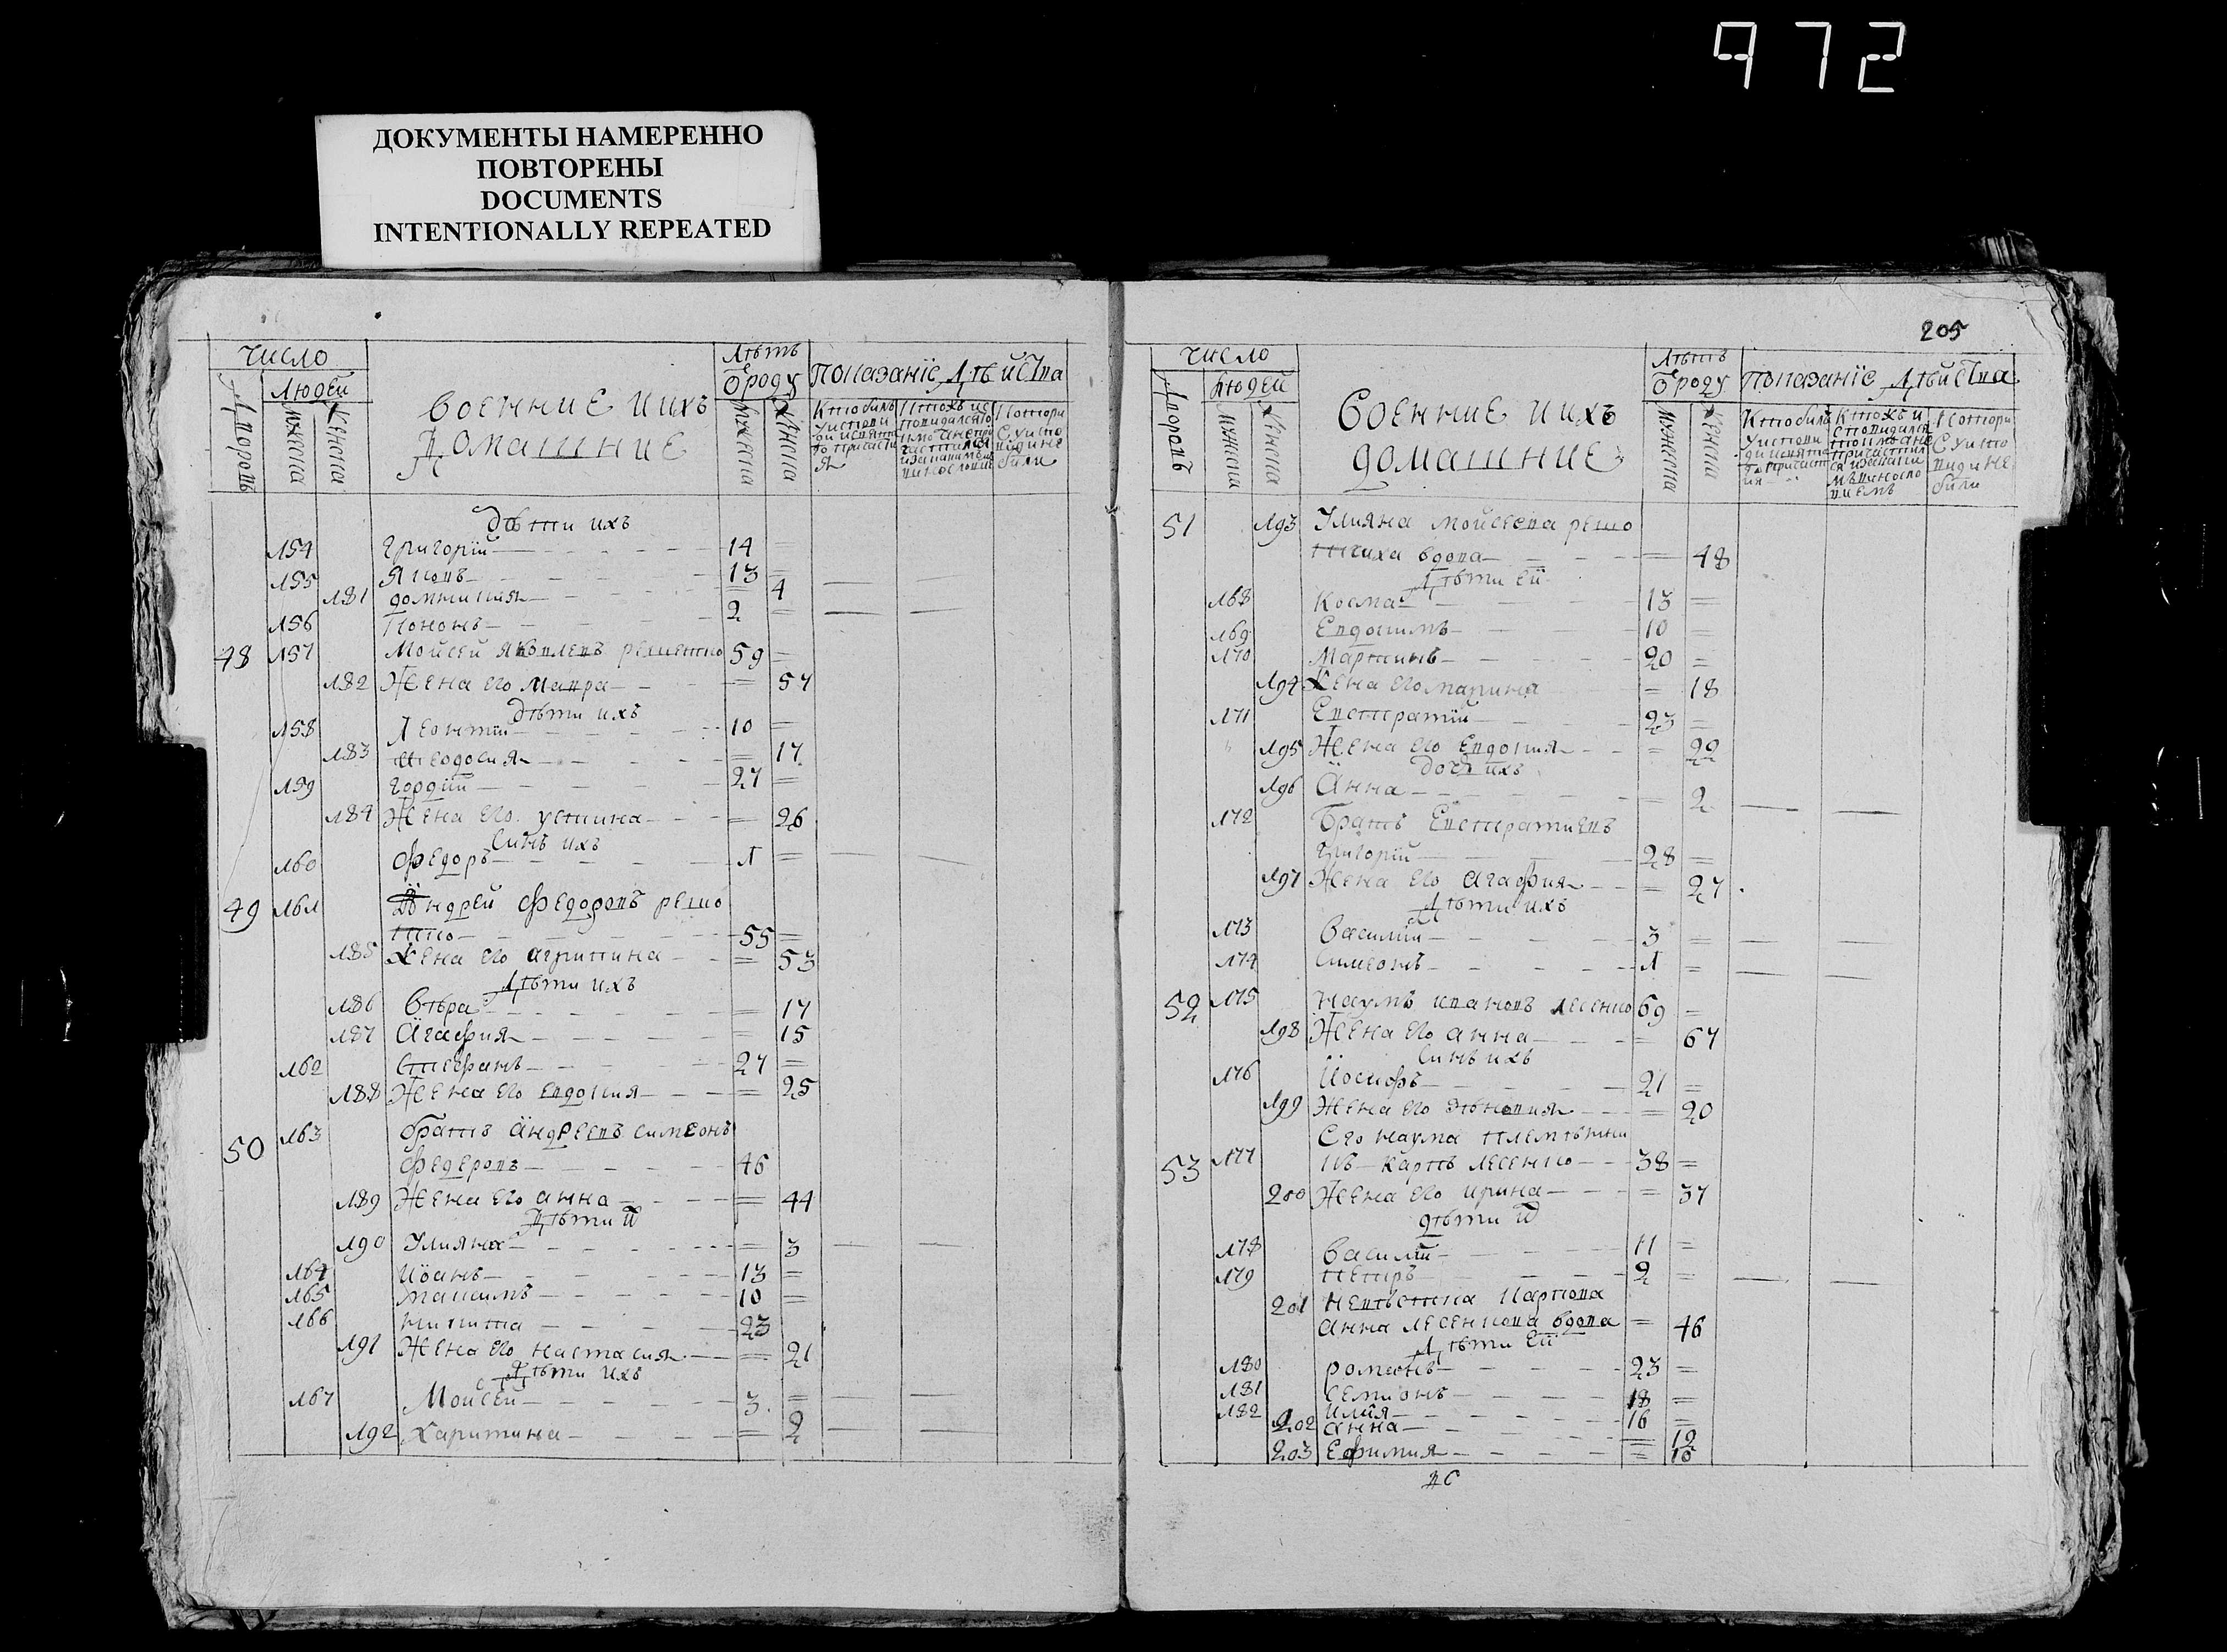 972
ДОКУМЕНТЫ НАМЕРЕННО
ПОВТОРЕНЫ
DOCUMENTS
INTENTIONALLY REPEATED
число
Людей
Дворовъ
Мужеска
Женска
Военние и ихъ
Домашние
Лѣтъ
ѿ роду
Мужеска
Женска
Показанїе Дѣйства
Кто били
у исповѣ
ди и свята
го причасти
я
Которы
у испо
вѣди не
били
Дѣти ихъ
154 Григорїй 14 =
155 Яковъ 13 =
181 Домникия = 4
156 Кононъ 2 =
48 157 Мойсей Яковлевъ решетко 59 =
182 Жена его Мавра = 57
Дѣти ихъ
158 Леонтїй 10 =
183 Феодосия = 17
159 Гордїй 27 =
184 Жена его устина = 26
Синъ ихъ
160 Федоръ 1 =
49 161 Андрей Федоровъ реше
тко 55 =
185 Жена его агрипина = 53
Дѣти ихъ
186 Вѣра = 17
187 Агафия = 15
162 Стефанъ 27 =
188 Жена его Евдокия = 25
50 163 братъ Андреевъ Симеонъ
Федеровъ 46
189 Жена его анна = 44
Дѣти ѿ
190 Улияна = 3
164 Иоанъ 13 =
165 Максимъ 10 =
166 Никита 23
191 Жена его настасия = 21
Дѣти ихъ
167 Моисей 3 =
192 Харитина = 2
205
число
людей
Дворовъ
Мужеска
Женска
Военние и ихъ
домашние
Лѣтъ
ѿ роду
Мужеска
Женска
Показанїе Дѣйства
Кто били
у исповѣ
ди и свята
го причаст
ия
Которы
у испо
вѣди не
били
51 193 Улияна Мойсеева реше
тчиха вдова = 48
Дѣти ей
168 Косма 13 =
169 Евдокимъ 10 =
170 Мартинъ 20 =
194 Жена его марина = 18
171 Евстратїй 23 =
195 Жена его Евдокия = 22
Дочь ихъ
196 Анна = 2
172 Братъ Евстратиевъ
Григорїй 28 =
197 Жена его агафия = 27
Дѣти ихъ
173 Василїй 3 =
174 Симеонъ 1 =
52 175 Наумъ ивановъ лесенко 69 =
198 Жена его анна = 67
Синъ ихъ
176 Иосифъ 21 =
199 Жена его = 20
Его наума племѣнни
53 177 къ карпъ лесенко 38 =
200 Жена его ирина = 37
дѣти ѿ
178 Василїй 11 =
179 Петръ 2 =
201 Невѣстка Карпова
анна лесенкова вдова = 46
Дѣти ей
180 романъ 23 =
181 семионъ 18 =
182 илия 16 =
202 анна = 12
203 Ефимия = 10
вс